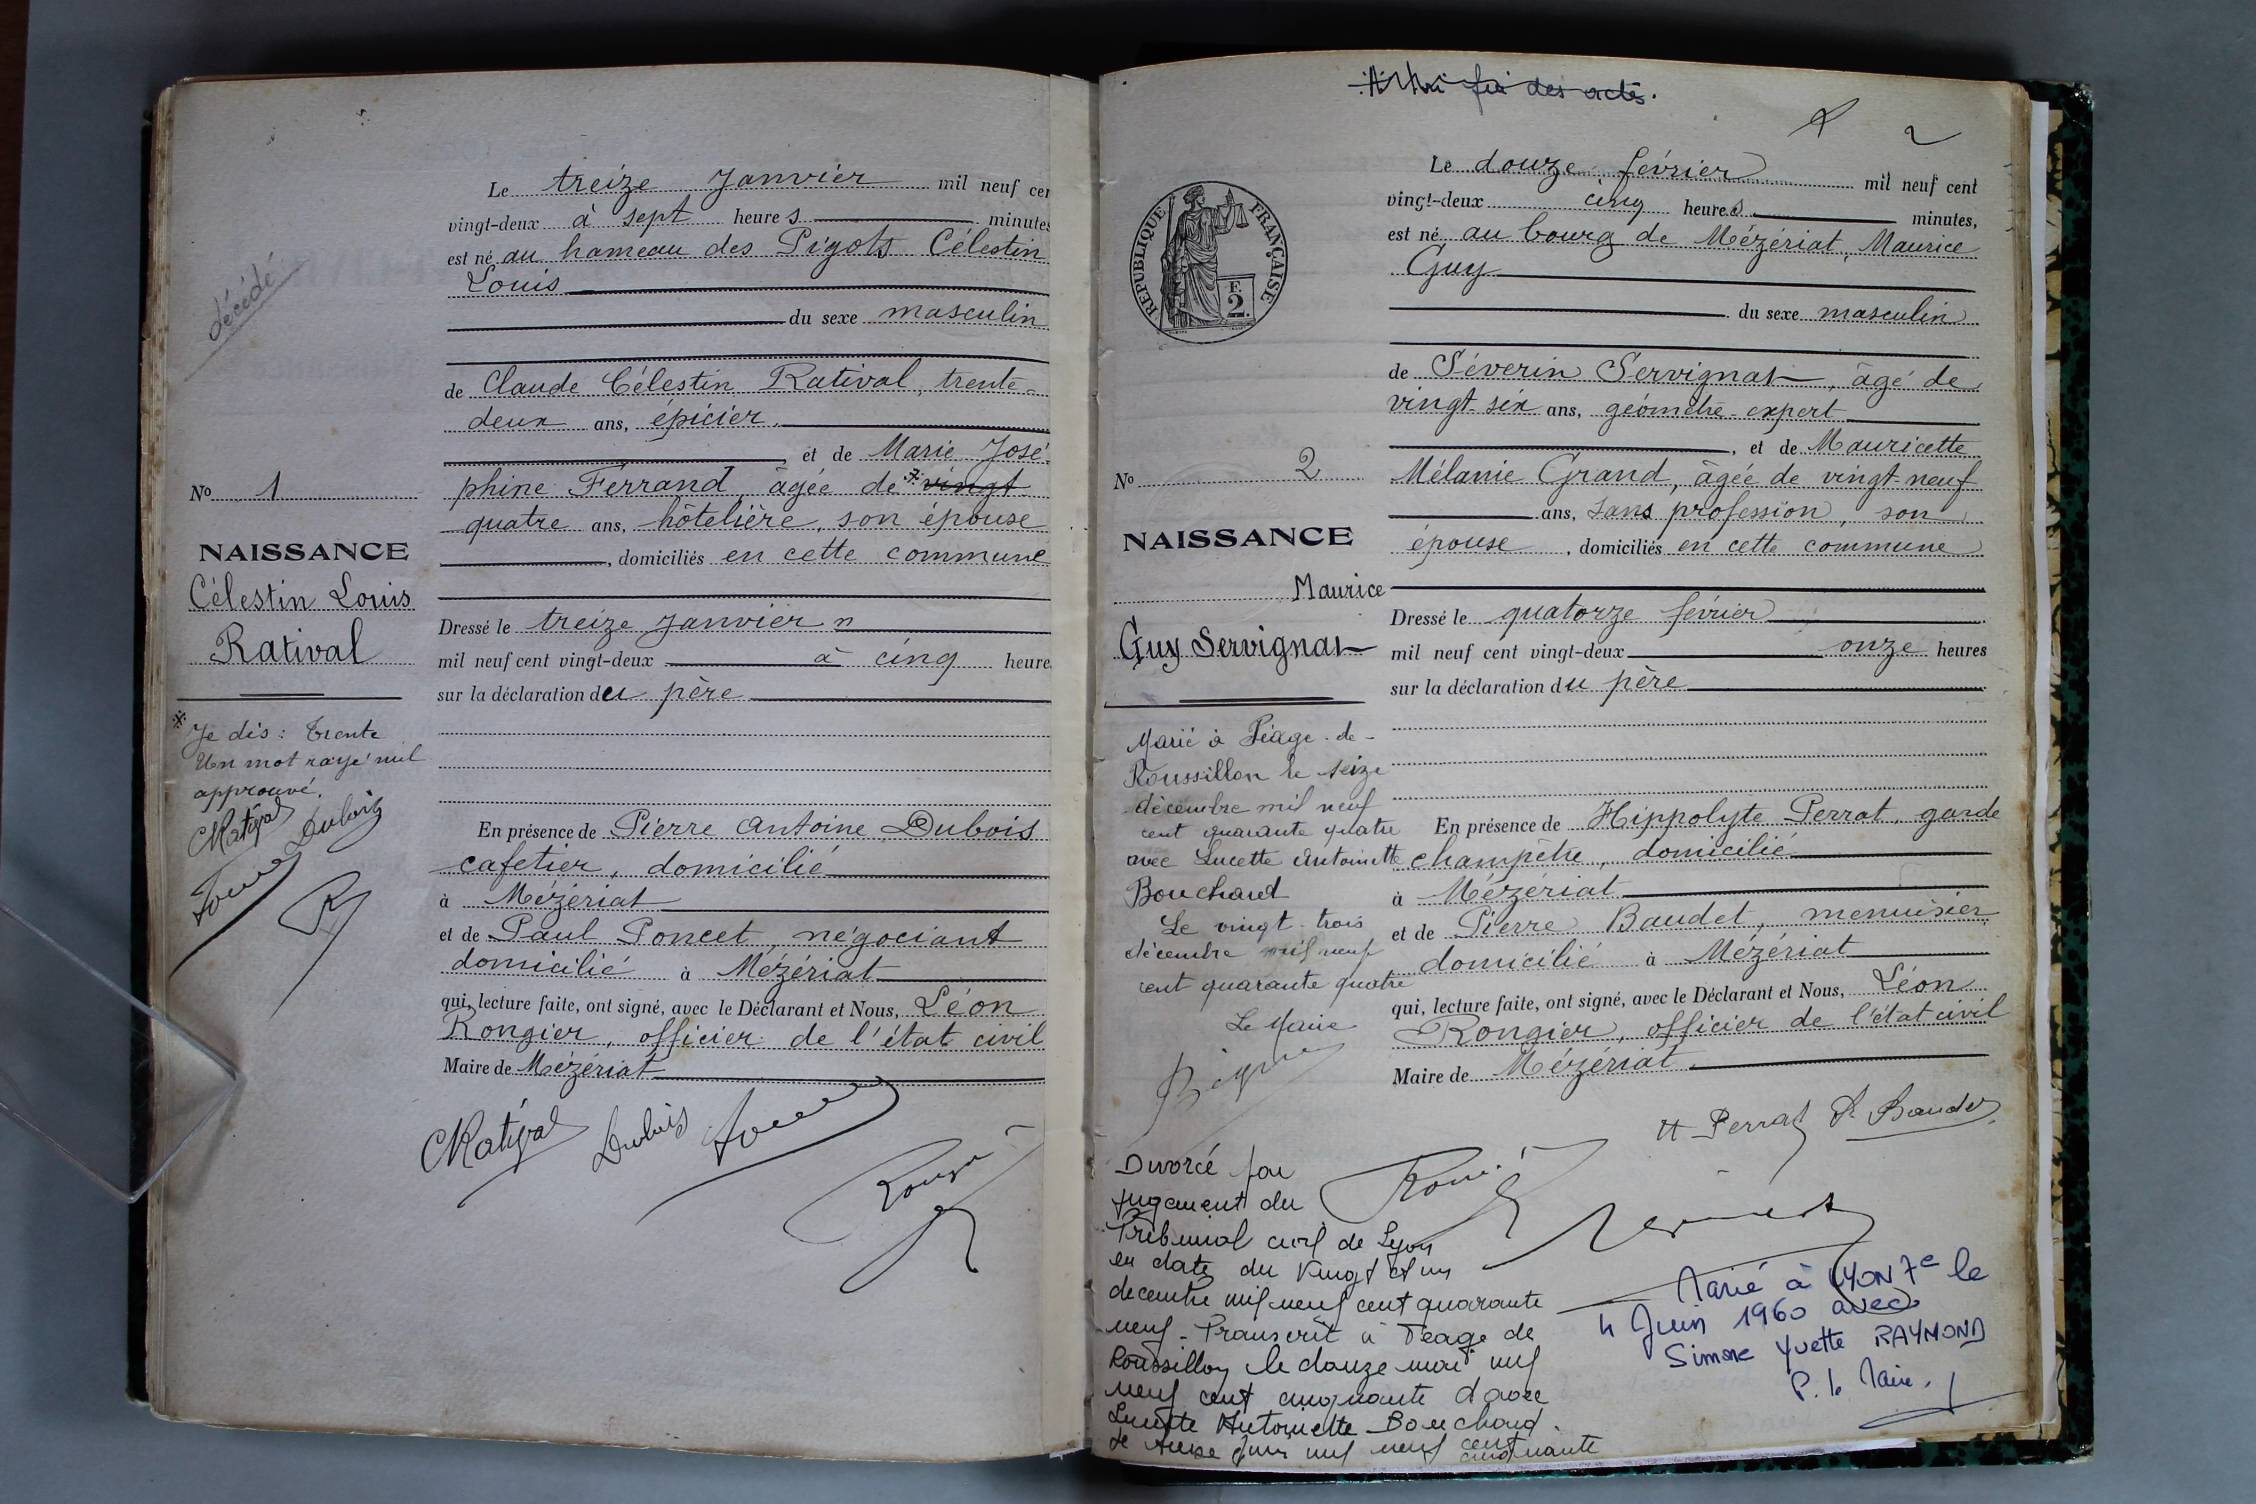 décédé
Le treize Janvier mil neuf cen
vingt-deux à sept heures minutes
est né au hameau des Pigols Célestin
Louis
du sexe masculin
de Claude Célestin Ratival, trente-
deux ans, épicier.
et de Marie José-
phine Ferrand, âgée de * vingt
quatre ans, hôtelière, son épouse
, domiciliés en cette commune
Dressé le treize Janvier
mil neuf cent vingt-deux à cinq heure
sur la déclaration du père
En présence de Pierre Antoine Dubois
cafetier, domicilié
à Mézériat
et de Paul Poncet, négociant
domicilié à Mézériat
qui, lecture faite, ont signé, avec le Déclarant et Nous, Léon
Rongier, officier de l'état civil
Maire de Mézériat
CRatival Dubois
No 1
NAISSANCE
Célestin Louis
Ratival
* Je dis : trente
Un mot rayé nul
approuvé.
CRatival Dubois
fin des actes.
2
RÉPUBLIQUE FRANÇAISE
F.
2.
Le douze février mil neuf cent
vingt-deux cinq heures minutes,
est né au bourg de Mézériat, Maurice
Guy
du sexe masculin
de Séverin Servignat, âgé de
vingt-six ans, géomètre-expert
, et de Mauricette
Mélanie Grand, âgée de vingt-neuf
ans, sans profession, son
épouse, domiciliés en cette commune
Dressé le quatorze février
mil neuf cent vingt-deux onze heures
sur la déclaration du père
En présence de Hippolyte Perrat, garde
champêtre, domicilié
à Mézériat
et de Pierre Baudet, menuisier
domicilié à Mézériat
qui, lecture faite, ont signé, avec le Déclarant et Nous, Léon
Rongier, officier de l'état civil
Maire de Mézériat.
H Perrat P. Baudet
No 2
NAISSANCE
Maurice
Guy Servignat
Marié à Péage-de-
Roussillon le seize
décembre mil neuf
cent quarante quatre
avec Lucette Antoinette
Bouchard
Le vingt-trois
décembre mil neuf
cent quarante quatre
Le Maire
Divorcé par
jugement du
Tribunal civil de Lyon
en date du vingt et un
décembre mil neuf cent quarante
neuf. Transcrit à Péage de
Roussillon le douze mai mil
neuf cent cinquante d'avec
Lucette Antoinette Bouchard.
Le juin mil neuf cent
cinquante
Marié à LYON 7e le
4 Juin 1960 avec
Simone Yvette RAYMOND
P. le Maire.